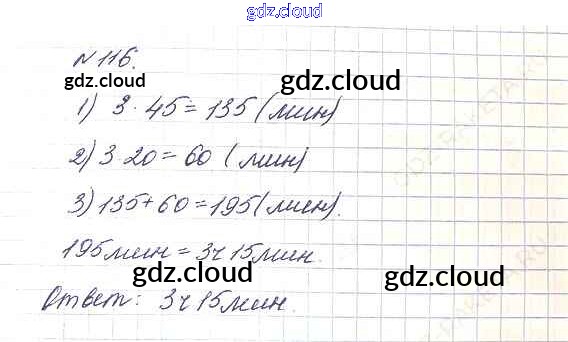 gdz.cloud
№ 116.
gdz.cloud gdz.cloud
1) 3 · 45 = 135 (мин)
2) 3 20 = 60 (мин)
3) 135 + 60 = 195 (мин).
195 мин = 3ч 15 мин.
gdz.cloud gdz.cloud
Ответ: 3ч 15 мин.